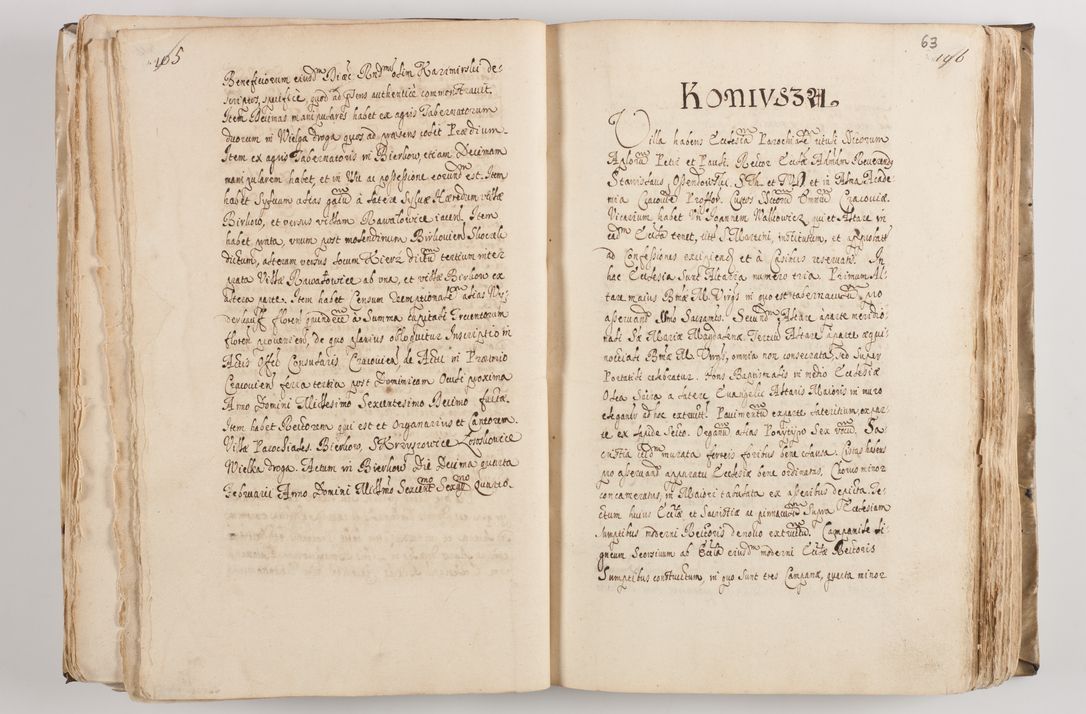 195
Beneficiorum eiusdm Biały Rndmi olim Kazimirski de-
scriptus, specifice, quod ad pñens authentice commonstravit.
Item Decimas manipulares habet ex agris Tabernatorum
duorum in Wielga droga quos ad præsens colit Prædium
Item ex agris Tabernatoris in Bierkow, etiam Decimam
manipularem habet, et in Usu ac possessione eorundm est. Item
habet Sylvam alias gaiū à latere Sylvæ Hæredum villæ
Birkow, et versus villam Rawałowice iacen. Item
habet prata, unum post molendinum Birkovien Skoczel
dictum, alterum versus locum Kierz dictū tertium inter
prata Villæ Rawałowice ab una, et villæ Birkow ex
altera parte. Item habet Censum reemptionalē alias Wy-
derkauff floren quindecē à Summa capitali Trecentorum
floren provenien, de quo clarius obloquitur Inscriptio in
Actis Offii Consularis Cracovien, de Actu in Prætorio
Cracovien feria tertia post Dominicam Oculi proxima
Anno Domini Millesimo Sexcentesimo Decimo factæ.
Item habet Rectorem qui est et Organarius et Cantorem.
Villæ Parochiales. Bierkow, S Krzyszowice
Wielka droga. Actum in Bierkow Die Decima quarta
Februarii Anno Domini Millmo Sexcentmo Sexagmo Quarto.
63
196
KONIVSZA.
Villa habens Ecclesiam Parochialē tituli Sctorum
Aplorū Petri et Pauli. Rector Ecclæ Admdm Reverend
Stanislaus S. Th. et et in Alma Acade
mia Cracovien Proffor. Custos Sctorū Omniū Cracoviæ.
Vicarium habet Vn Ioannem Walkowicz qui et Altare in
eadm Ecclia tenet, titt S Martini, institutum, et
ad Confessiones excipiend et à Casibus reservatis. In
hac Ecclesia Sunt Altaria numero tria. Primum Al
tare maius Btæ M. Virgis in quo est tabernaculū pro
asservand Ssmo Sacramto. Secundm Altare à parte meridio
nali Sæ Mariæ Magdalenæ. Tertiū Altare à parte æqui-
noctiali Btæ M. Virgis, omnia non consecrata, sed super
Portatili celebratur. Fons Baptismalis in medio Ecclesiæ
Olea Sacro à latere Evangelii Altaris Maioris in muro
eleganter ad hoc extructū. Pavimentū ex parte lateritium, ex par
te ex lapide Secto. Organū alias Pozytywo Sex vocū. Sa
cristia itidm murata ferreis foribus bene clausa. Cistas habens
pro asservand apparatu Ecclesiæ bene ordinatas. Chorus minor
concameratus, in Maiori tabulata ex asseribus depicta. Te-
ctum huius Ecclæ et Sacristiæ ac pinnaculū Supra Ecclesiam
Sumptibus moderni Rectoris de novo extructū. Campanile li
gneum Seorsivum ab Ecclia eiusdm moderni Ecclæ Rectoris
Sumptibus constructum, in quo Sunt tres Campanæ, quarta minor